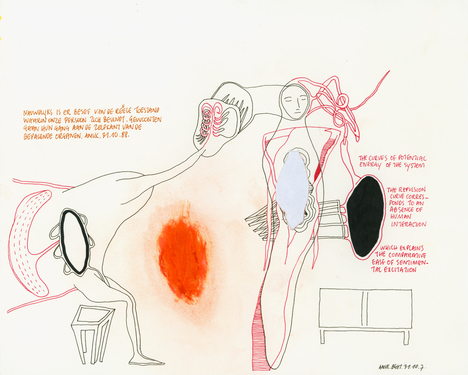 NAUWELIJKS IS ER BESEF VAN DE REËLE TOESTAND
WAARIN ONZE PERSOON ZICH BEVINDT. GEWOONTEN
GAAN HUN GANG AAN DE ZELFKANT VAN DE
BEPALENDE ORGANEN.
THE CURVES OF POTENTIAL
ENERGY OF THE SYSTEM
THE REPULSION
CURVE CORRES-
PONDS TO AN
ABSENCE OF
HUMAN
INTERACTION
WHICH EXPLAINS
THE COMPARATIVE
EASE OF SENTIMEN-
TAL EXCITATION